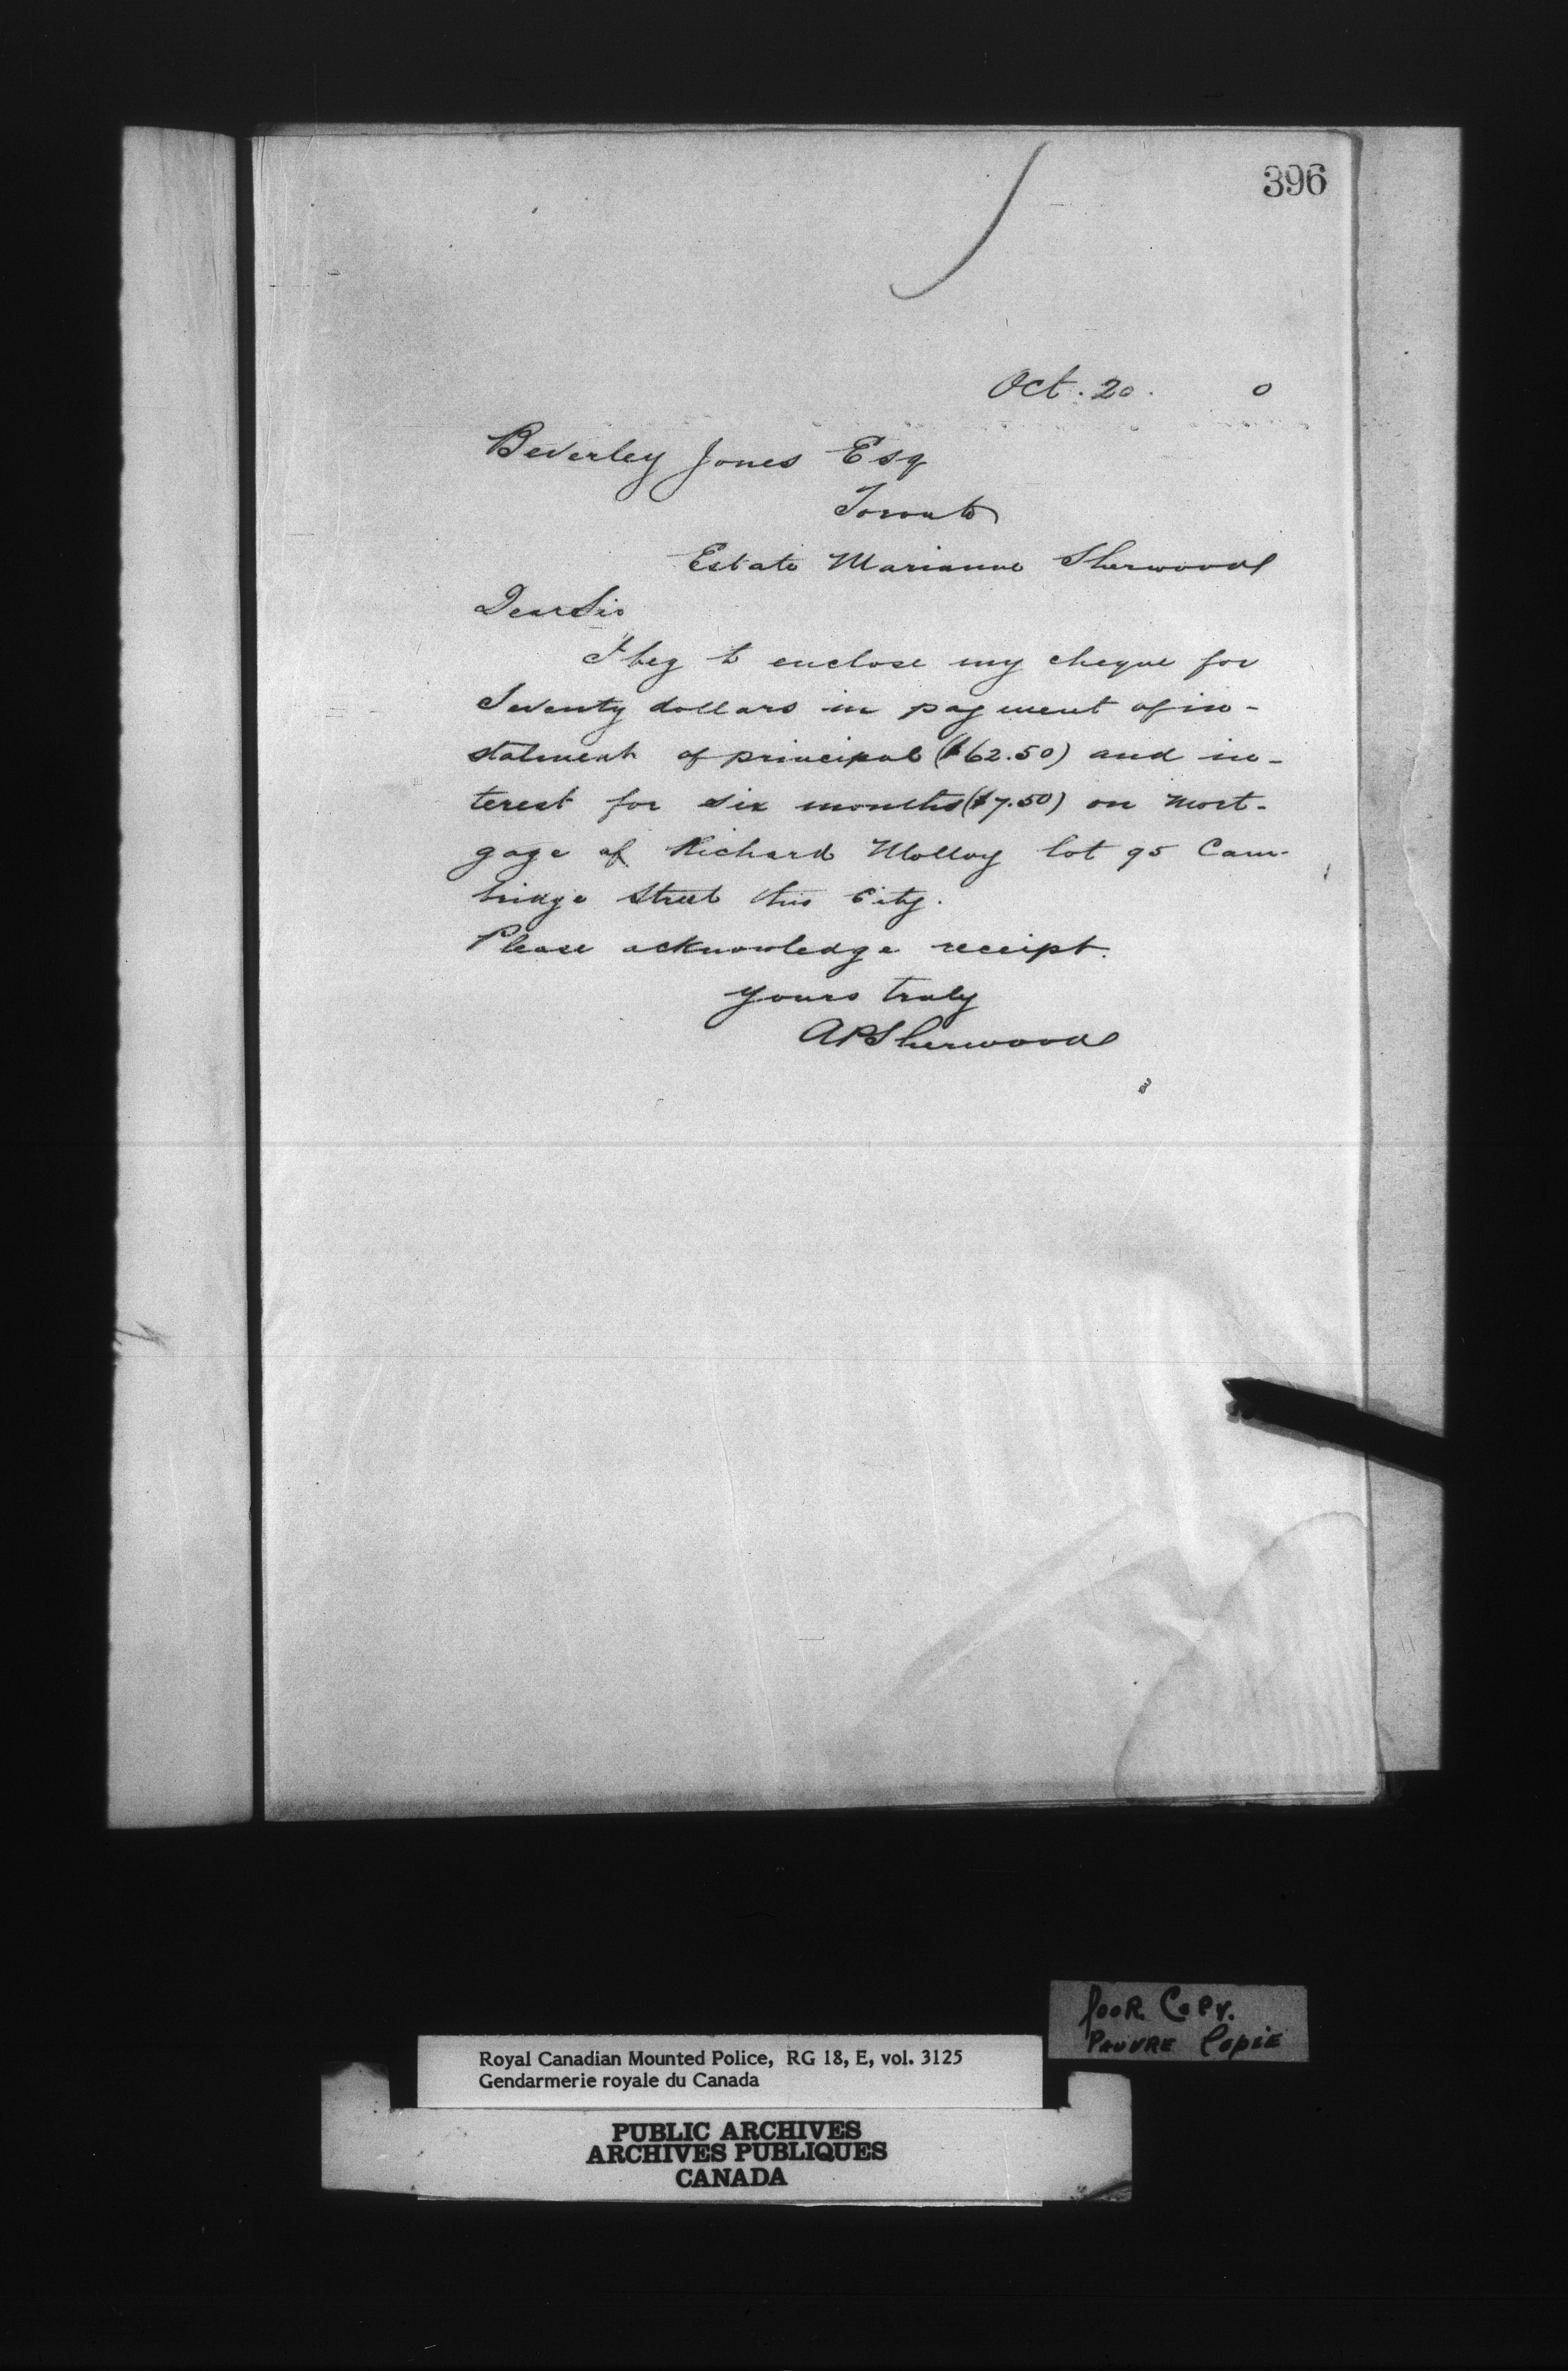 396
Oct. 20. 0
Beverley Jones Esq
Toronto
Estate Marianne Sherwood
Dear Sir
I beg to enclose my cheque for
Seventy dollars in payment of in-
stalment of principal ($62.50) and in-
terest for six months ($7.50) on Mort-
gage of Richard Molloy lot 95 Cam-
bridge Street this City.
Please acknowledge receipt.
Yours truly
APSherwood
Poor Copy.
Pauvre Copie
Royal Canadian Mounted Police, RG 18, E, vol. 3125
Gendarmerie royale du Canada
PUBLIC ARCHIVES
ARCHIVES PUBLIQUES
CANADA